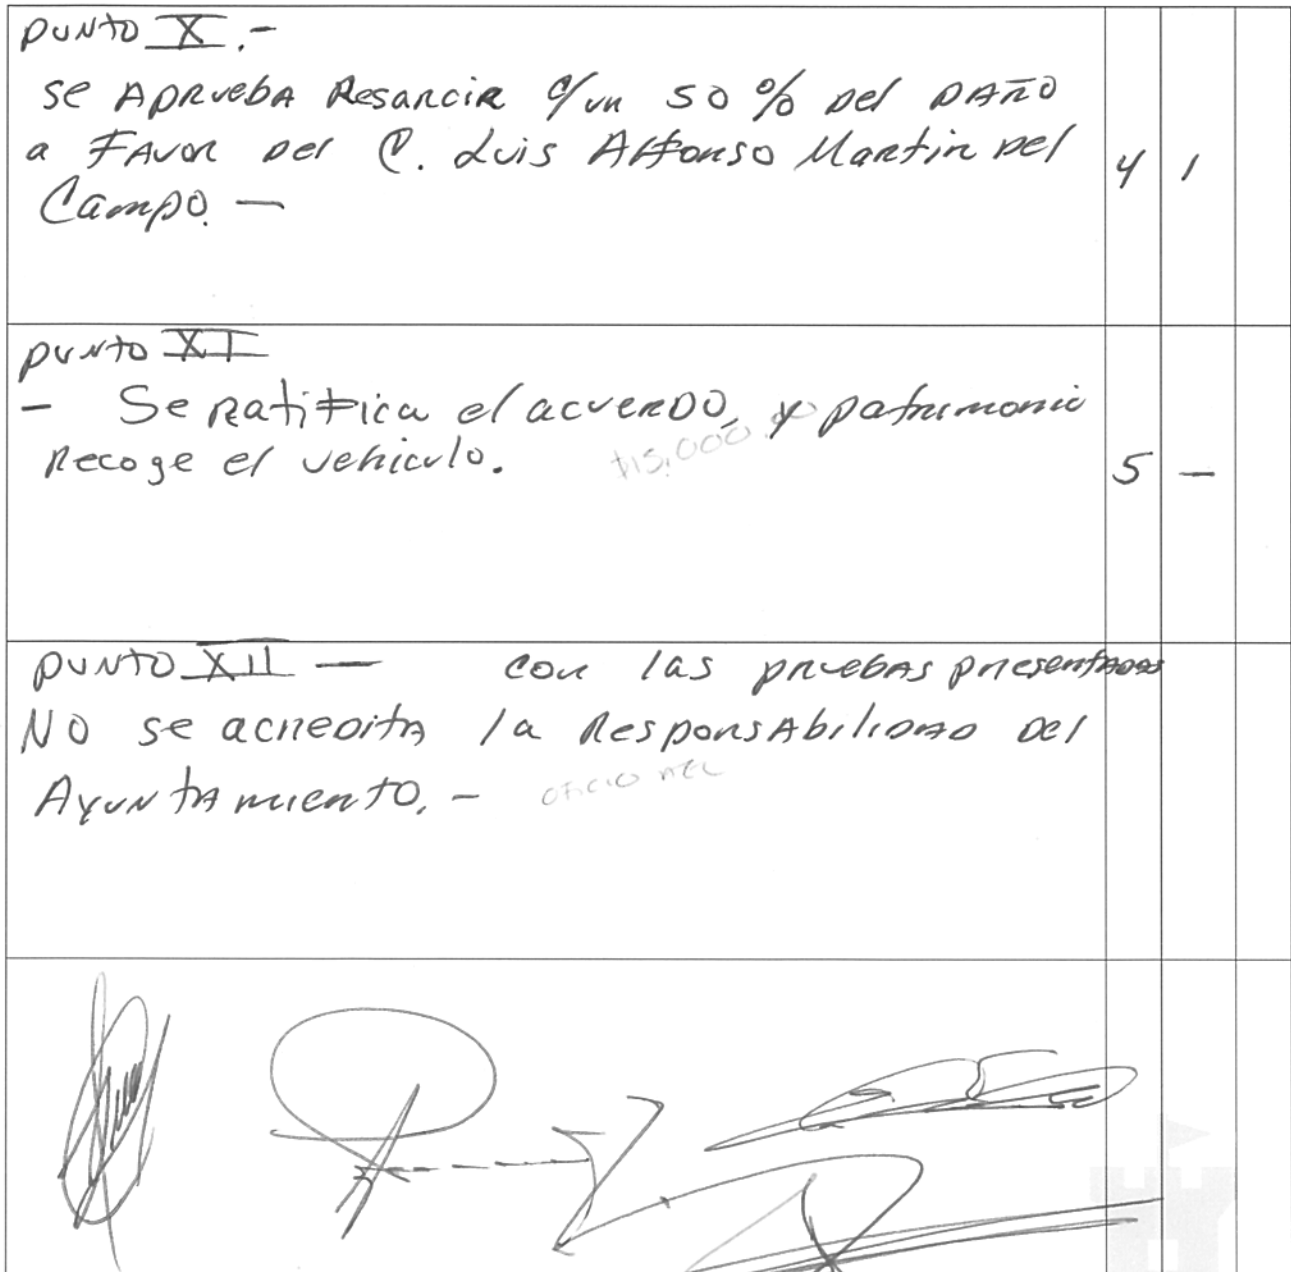 PUNTO X.-
Se APRUEBA Resarcir c/un 50% Del DAÑO
a FAVOR Del C. Luis Alfonso Martin Del
Campo. —
4 1
PUNTO XI
- Se Ratifica el acuerDO, y patrimonio
Recoge el vehiculo. $15,000.00
5 —
PUNTO XII — con las pruebas presentADAS
NO se acreditA la ResponsAbiliDAD Del
AyuntAmiento. - OFICIO DEL